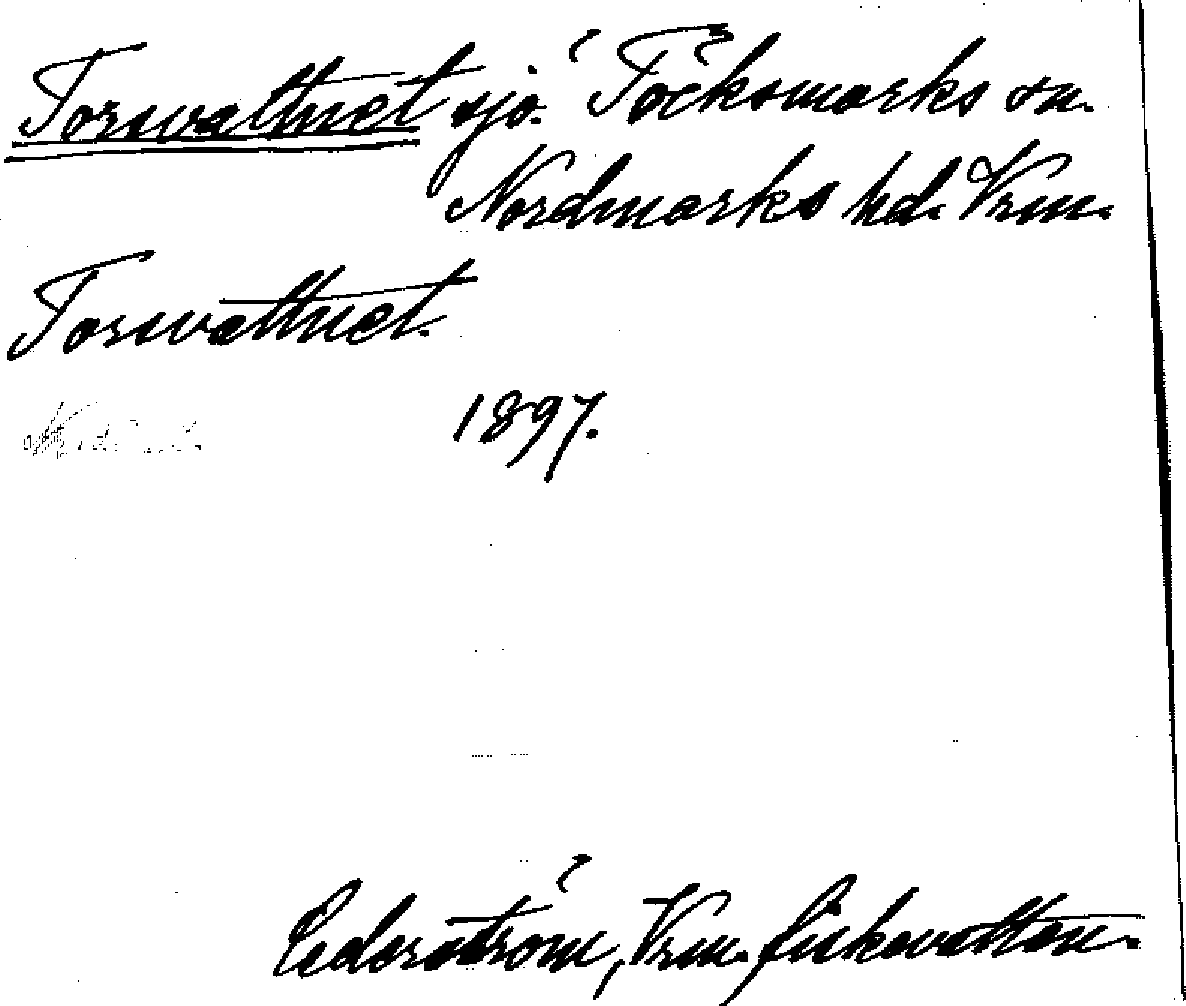 Torsvattnet sjö. Töcksmarks sn.
Nordmarks hd. Vrm.
Torsvattnet.
1897.
Cederström, Vrm. fiskevatten.